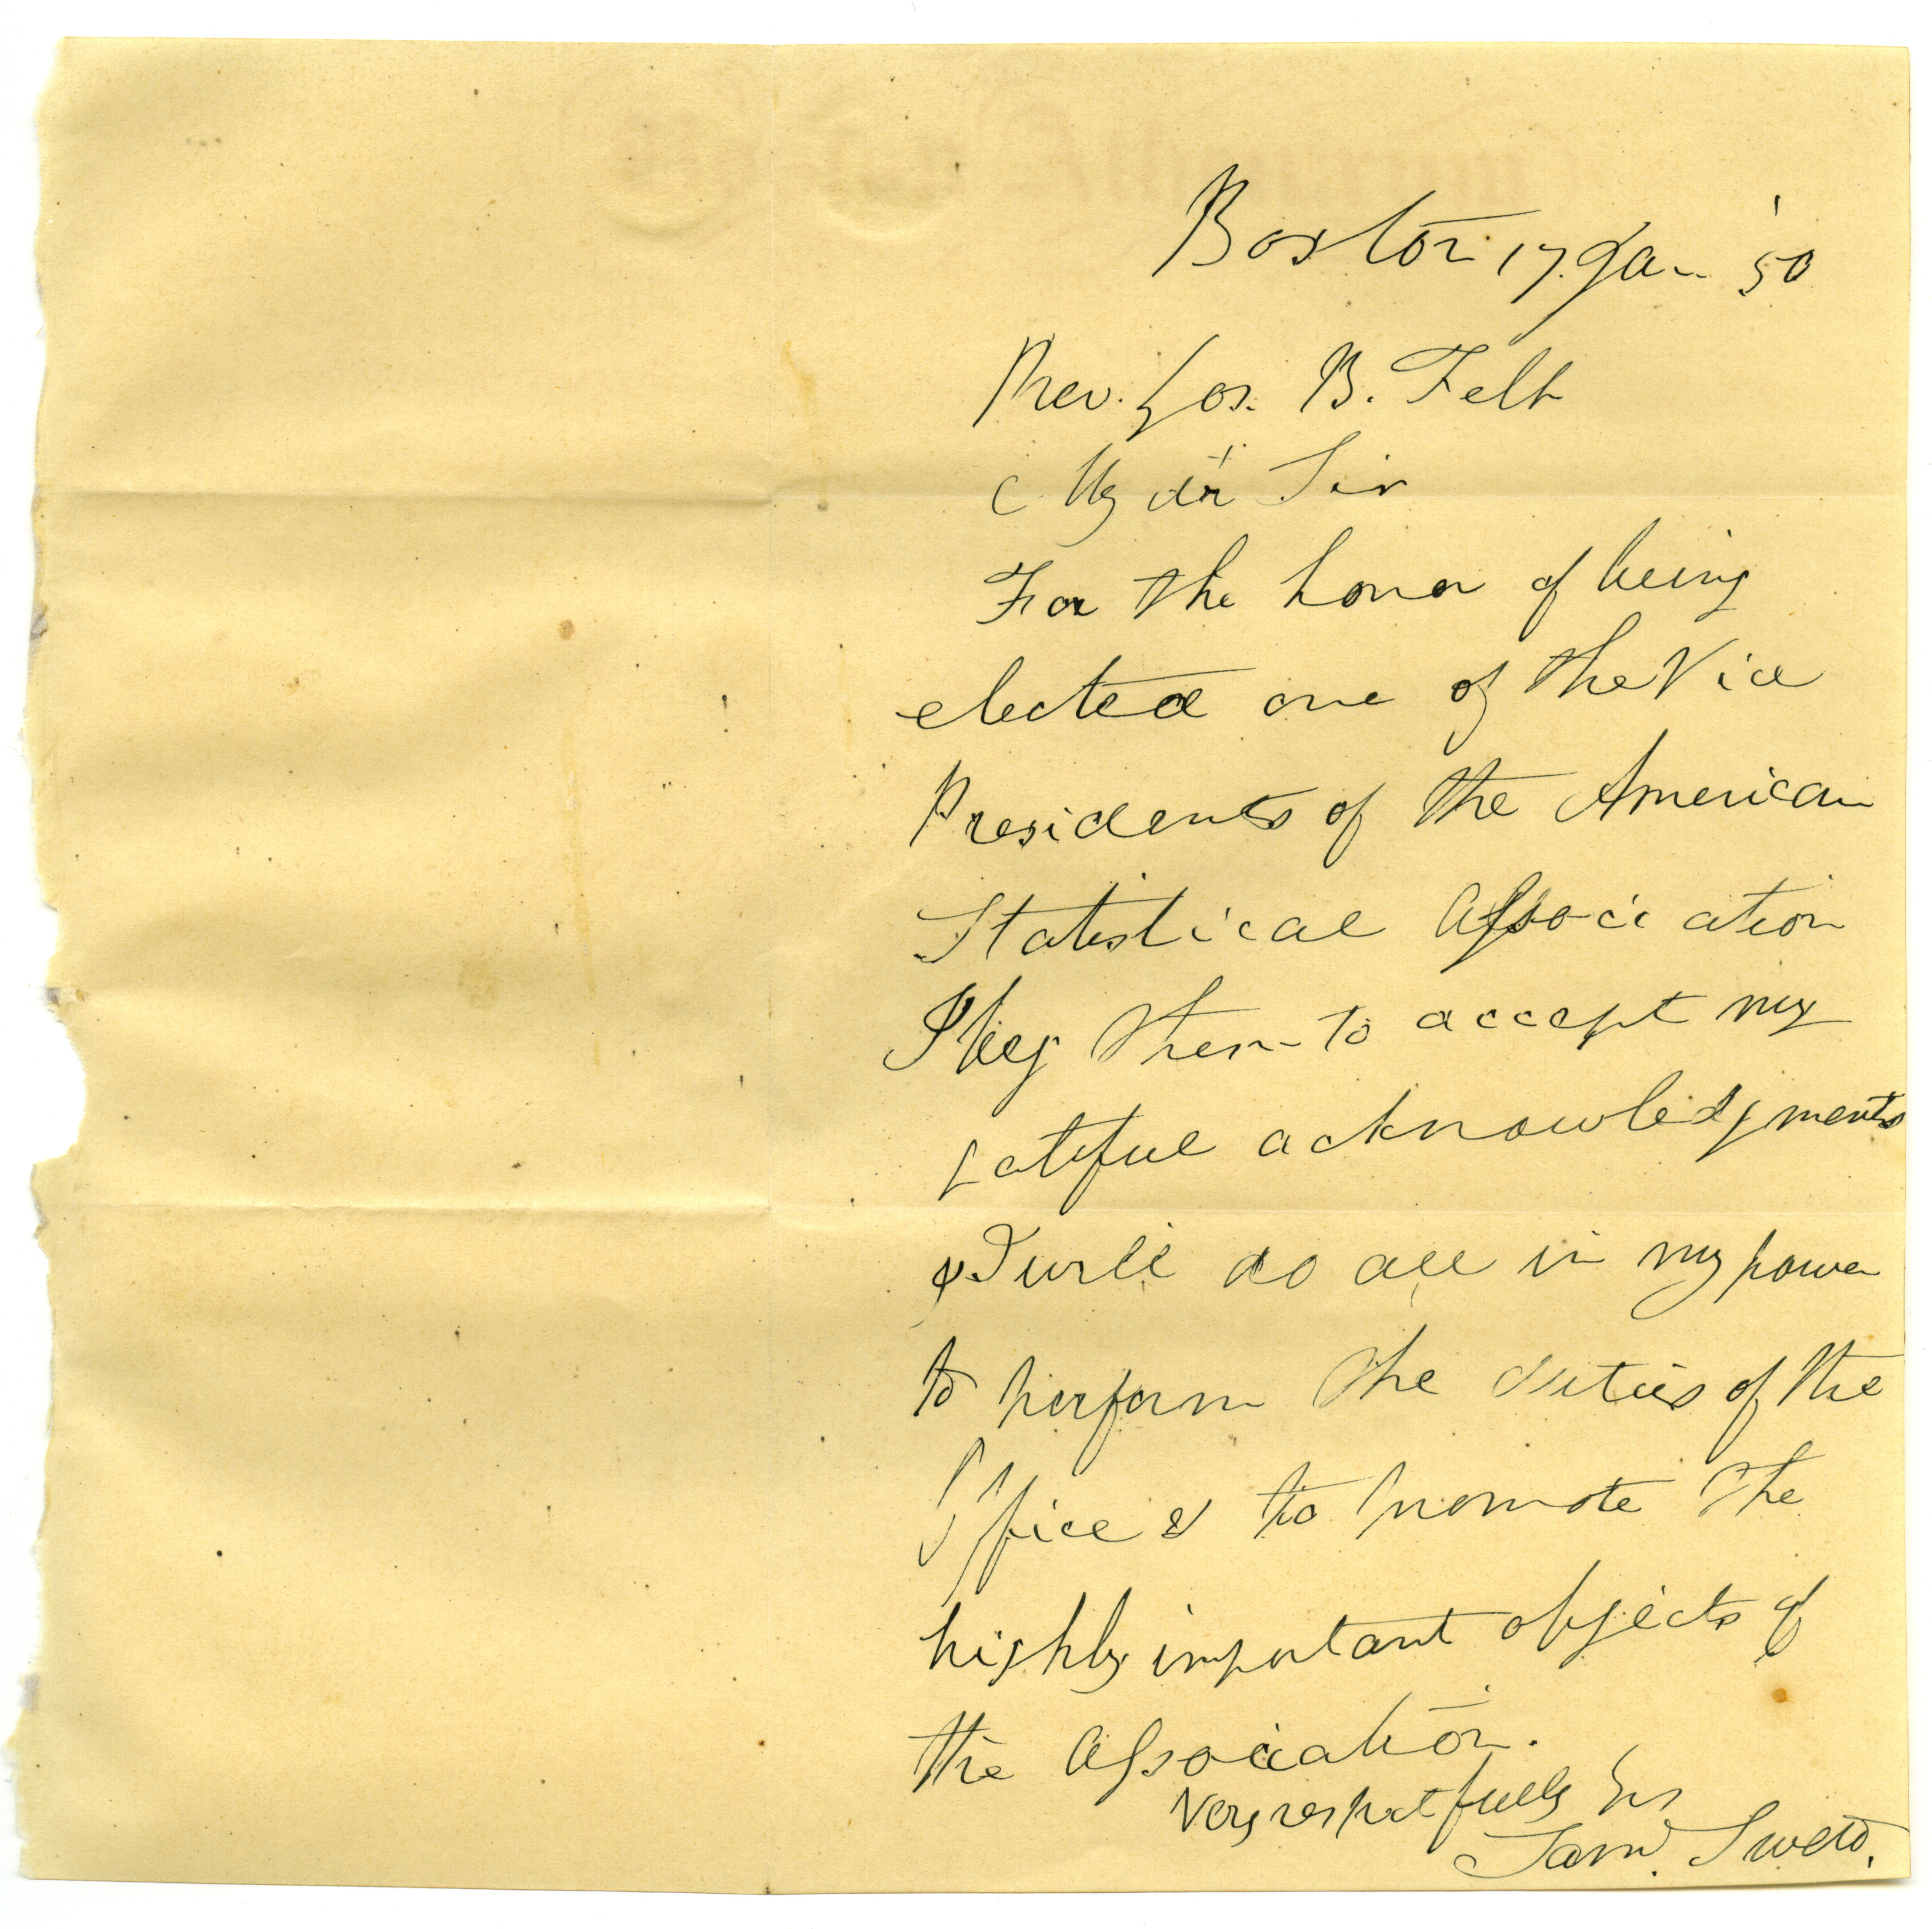 Boston 17. Jan '50
Rev. Jos. B. Felt
My dr Sir
For the honor of being
elected one of the Vice
Presidents of the American
Statistical Association
I beg them to accept my
gateful acknowledgments
& I will do all in my power
to perform the duties of the
Office & to promote the
highly important objects of
the Association.
Very respectfully Yrs
Sam.